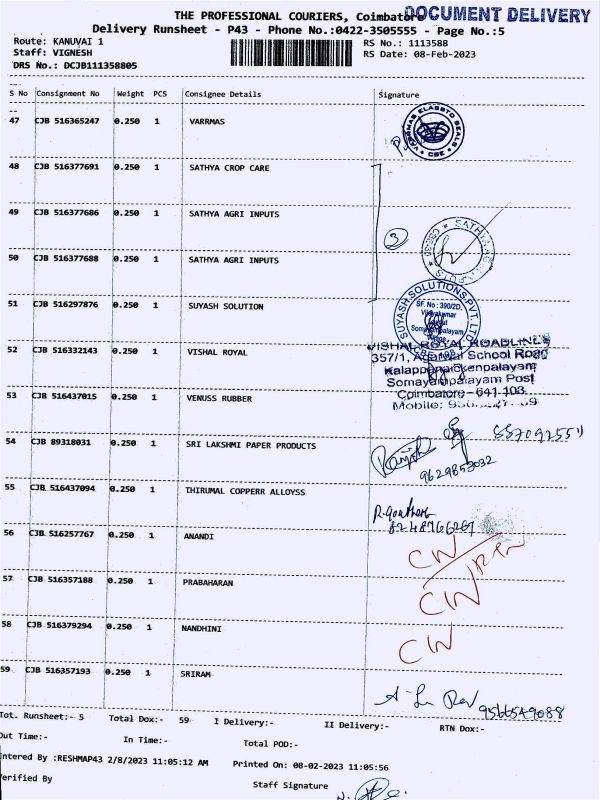 THE PROFESSIONAL COURIERS, Coimbatore
DOCUMENT DELIVERY
Delivery Runsheet - P43 - Phone No.:0422-3505555 - Page No.:5
Route: KANUVAI 1
RS No.: 1113588
Staff: VIGNESH
RS Date: 08-Feb-2023
DRS No.: DCJB111358805
S No Consignment No Weight PCS Consignee Details Signature
47 CJB 516365247 0.250 1 VARRMAS
VARRMAS ELASSTO SEALS
CBE
48 CJB 516377691 0.250 1 SATHYA CROP CARE
49 CJB 516377686 0.250 1 SATHYA AGRI INPUTS
3
SATHYA
50 CJB 516377688 0.250 1 SATHYA AGRI INPUTS
51 CJB 516297876 0.250 1 SUYASH SOLUTION
SUYASH SOLUTIONS PVT. LTD
SF. No : 390/2D,
Somayampalayam
52 CJB 516332143 0.250 1 VISHAL ROYAL
VISHAL ROYAL ROADLINES
357/1, Agarwal School Road
Kalappanaickenpalayam
Somayampalayam Post
Coimbatore - 641 103
Mobile:
53 CJB 516437015 0.250 1 VENUSS RUBBER
54 CJB 89318031 0.250 1 SRI LAKSHMI PAPER PRODUCTS
9629853032
55 CJB 516437094 0.250 1 THIRUMAL COPPERR ALLOYSS
8248766267
56 CJB 516257767 0.250 1 ANANDI
CW
57 CJB 516357188 0.250 1 PRABAHARAN
CW
58 CJB 516379294 0.250 1 NANDHINI
CW
59 CJB 516357193 0.250 1 SRIRAM
9566549088
Tot. Runsheet:- 5 Total Dox:- 59 I Delivery:- II Delivery:- RTN Dox:-
Out Time:- In Time:- Total POD:-
Entered By :RESHMAP43 2/8/2023 11:05:12 AM Printed On: 08-02-2023 11:05:56
Verified By
Staff Signature